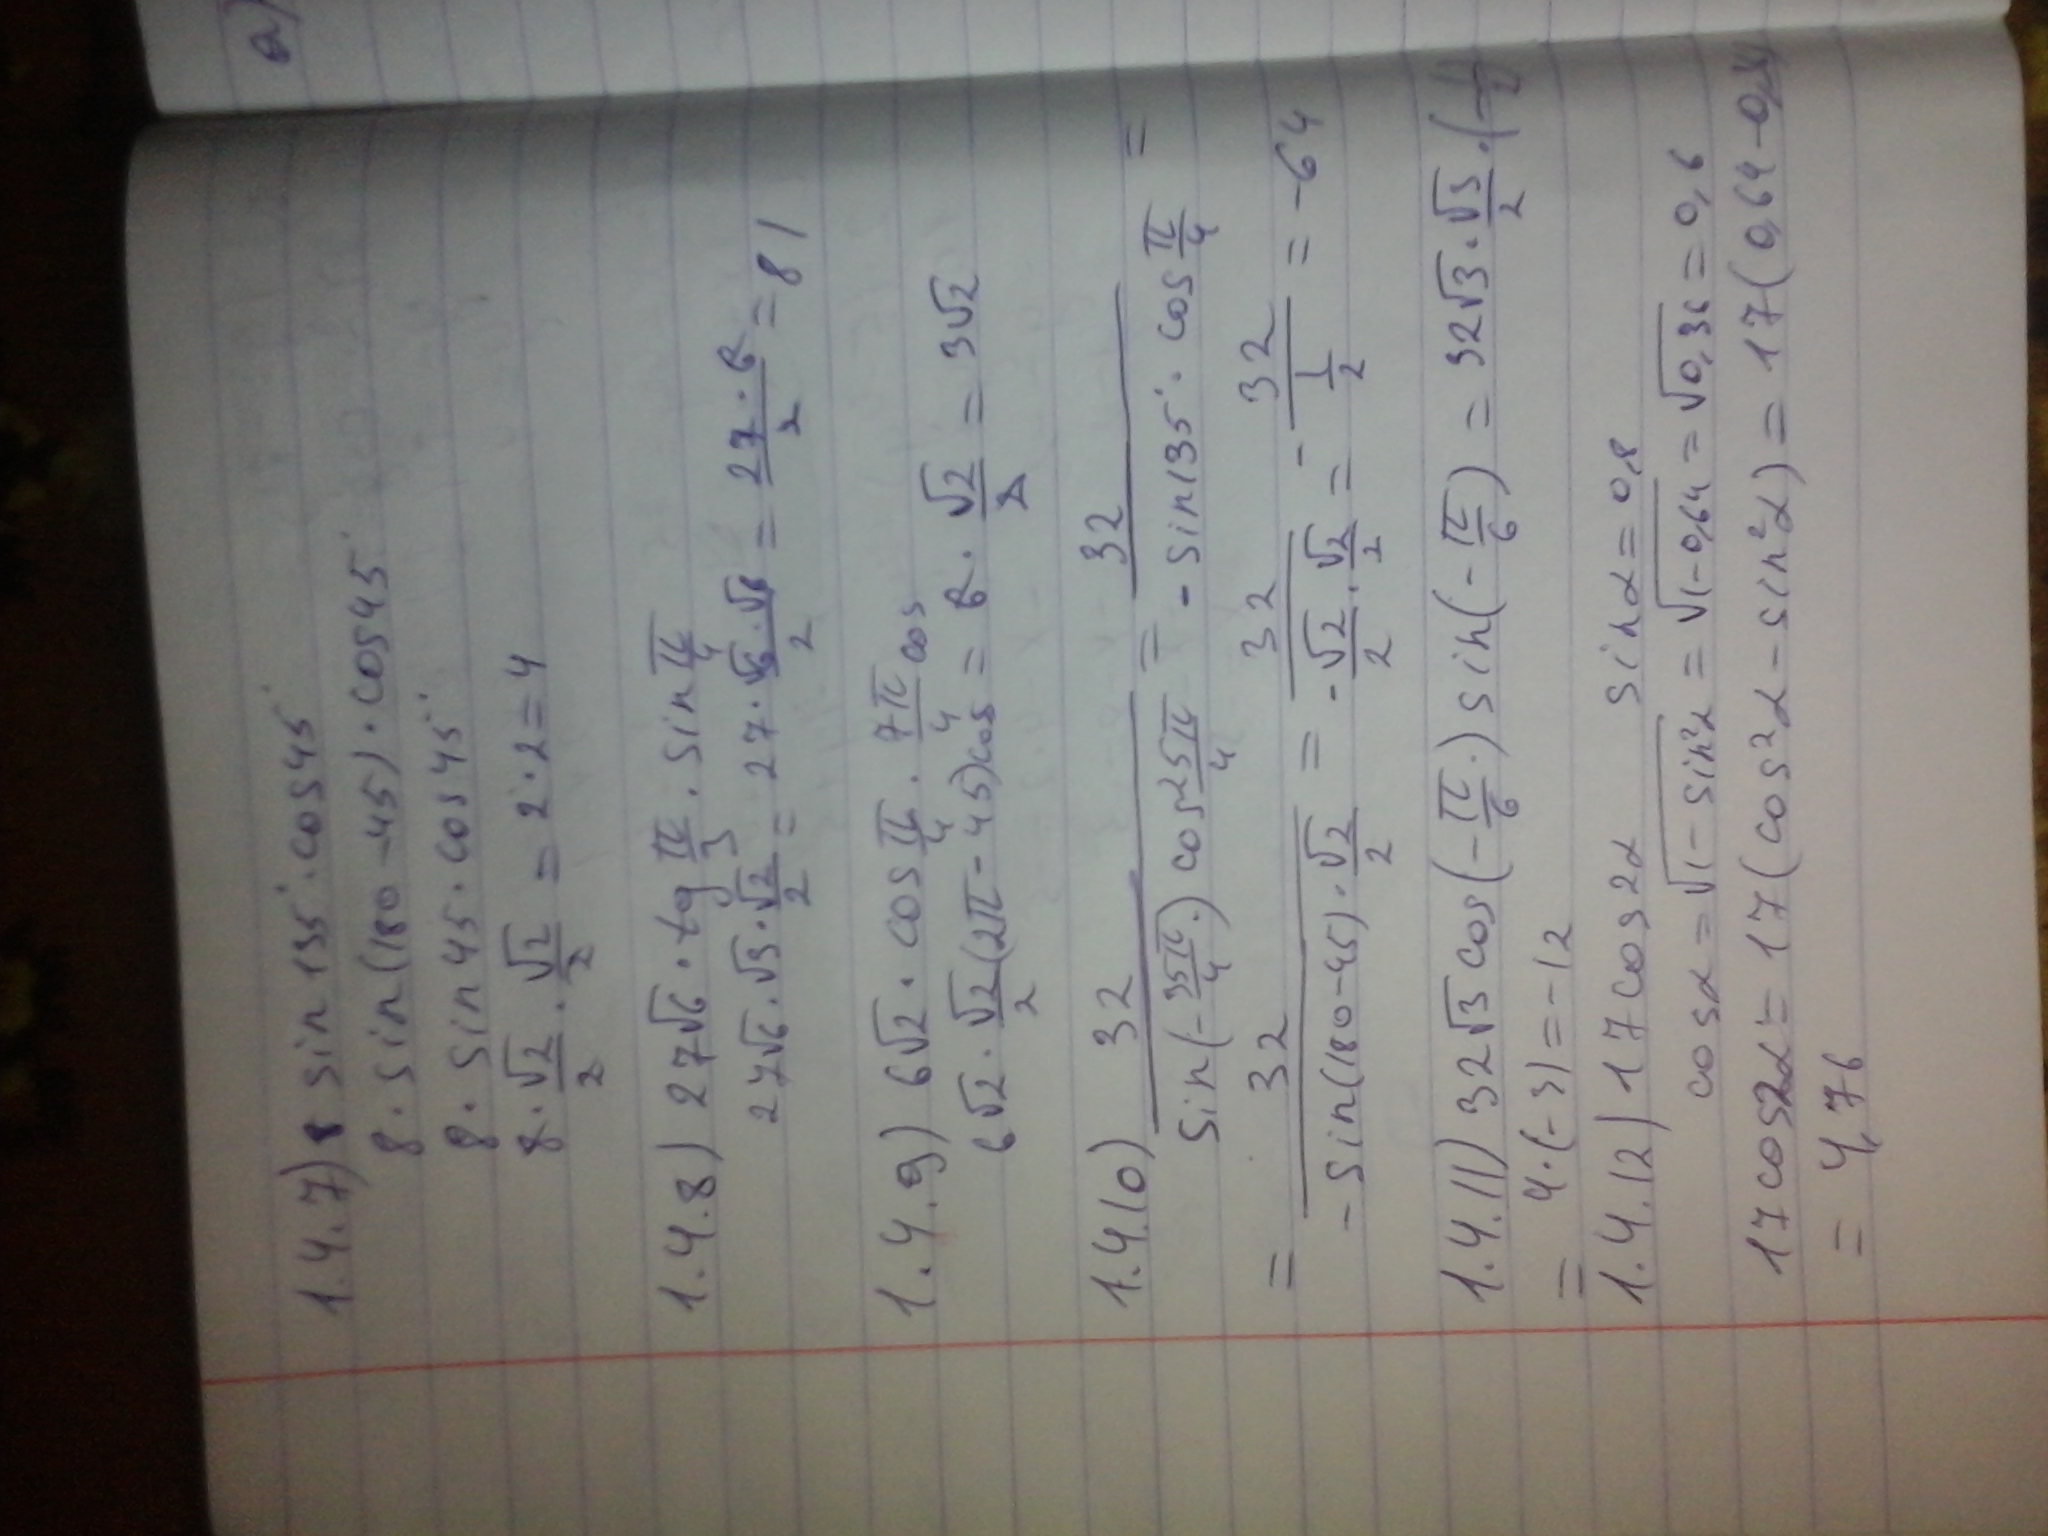 a)
1.4.7) 8 sin 135°·cos 45°
8·sin(180-45)·cos45°
8·sin45·cos45°
8·√2/2·√2/2=2·2=4
1.4.8) 27√6·tg π/3·sin π/4
27√6·√3·√2/2=27·√6·√6/2=27·6/2=81
1.4.9) 6√2·cos π/4·7π/4 cos
6√2·√2/2(2π-45)cos=6·√2/2=3√2
1.4.10) 32/sin(-35π/4·)cos 25π/4 = 32/-sin135°·cos π/4 =
= 32/-sin(180-45)·√2/2 = 32/-√2/2·√2/2 = - 32/1/2 = -64
1.4.11) 32√3 cos(-π/6·) sin(-π/6)=32√3·√3/2·(-1/2
= 4·(-3)=-12
1.4.12) 17cos2α sinα=0,8
cosα=√1-sin²α=√1-0,64=√0,36=0,6
17cos2α=17(cos²α-sin²α)=17(0,64-0,36
= 4,76